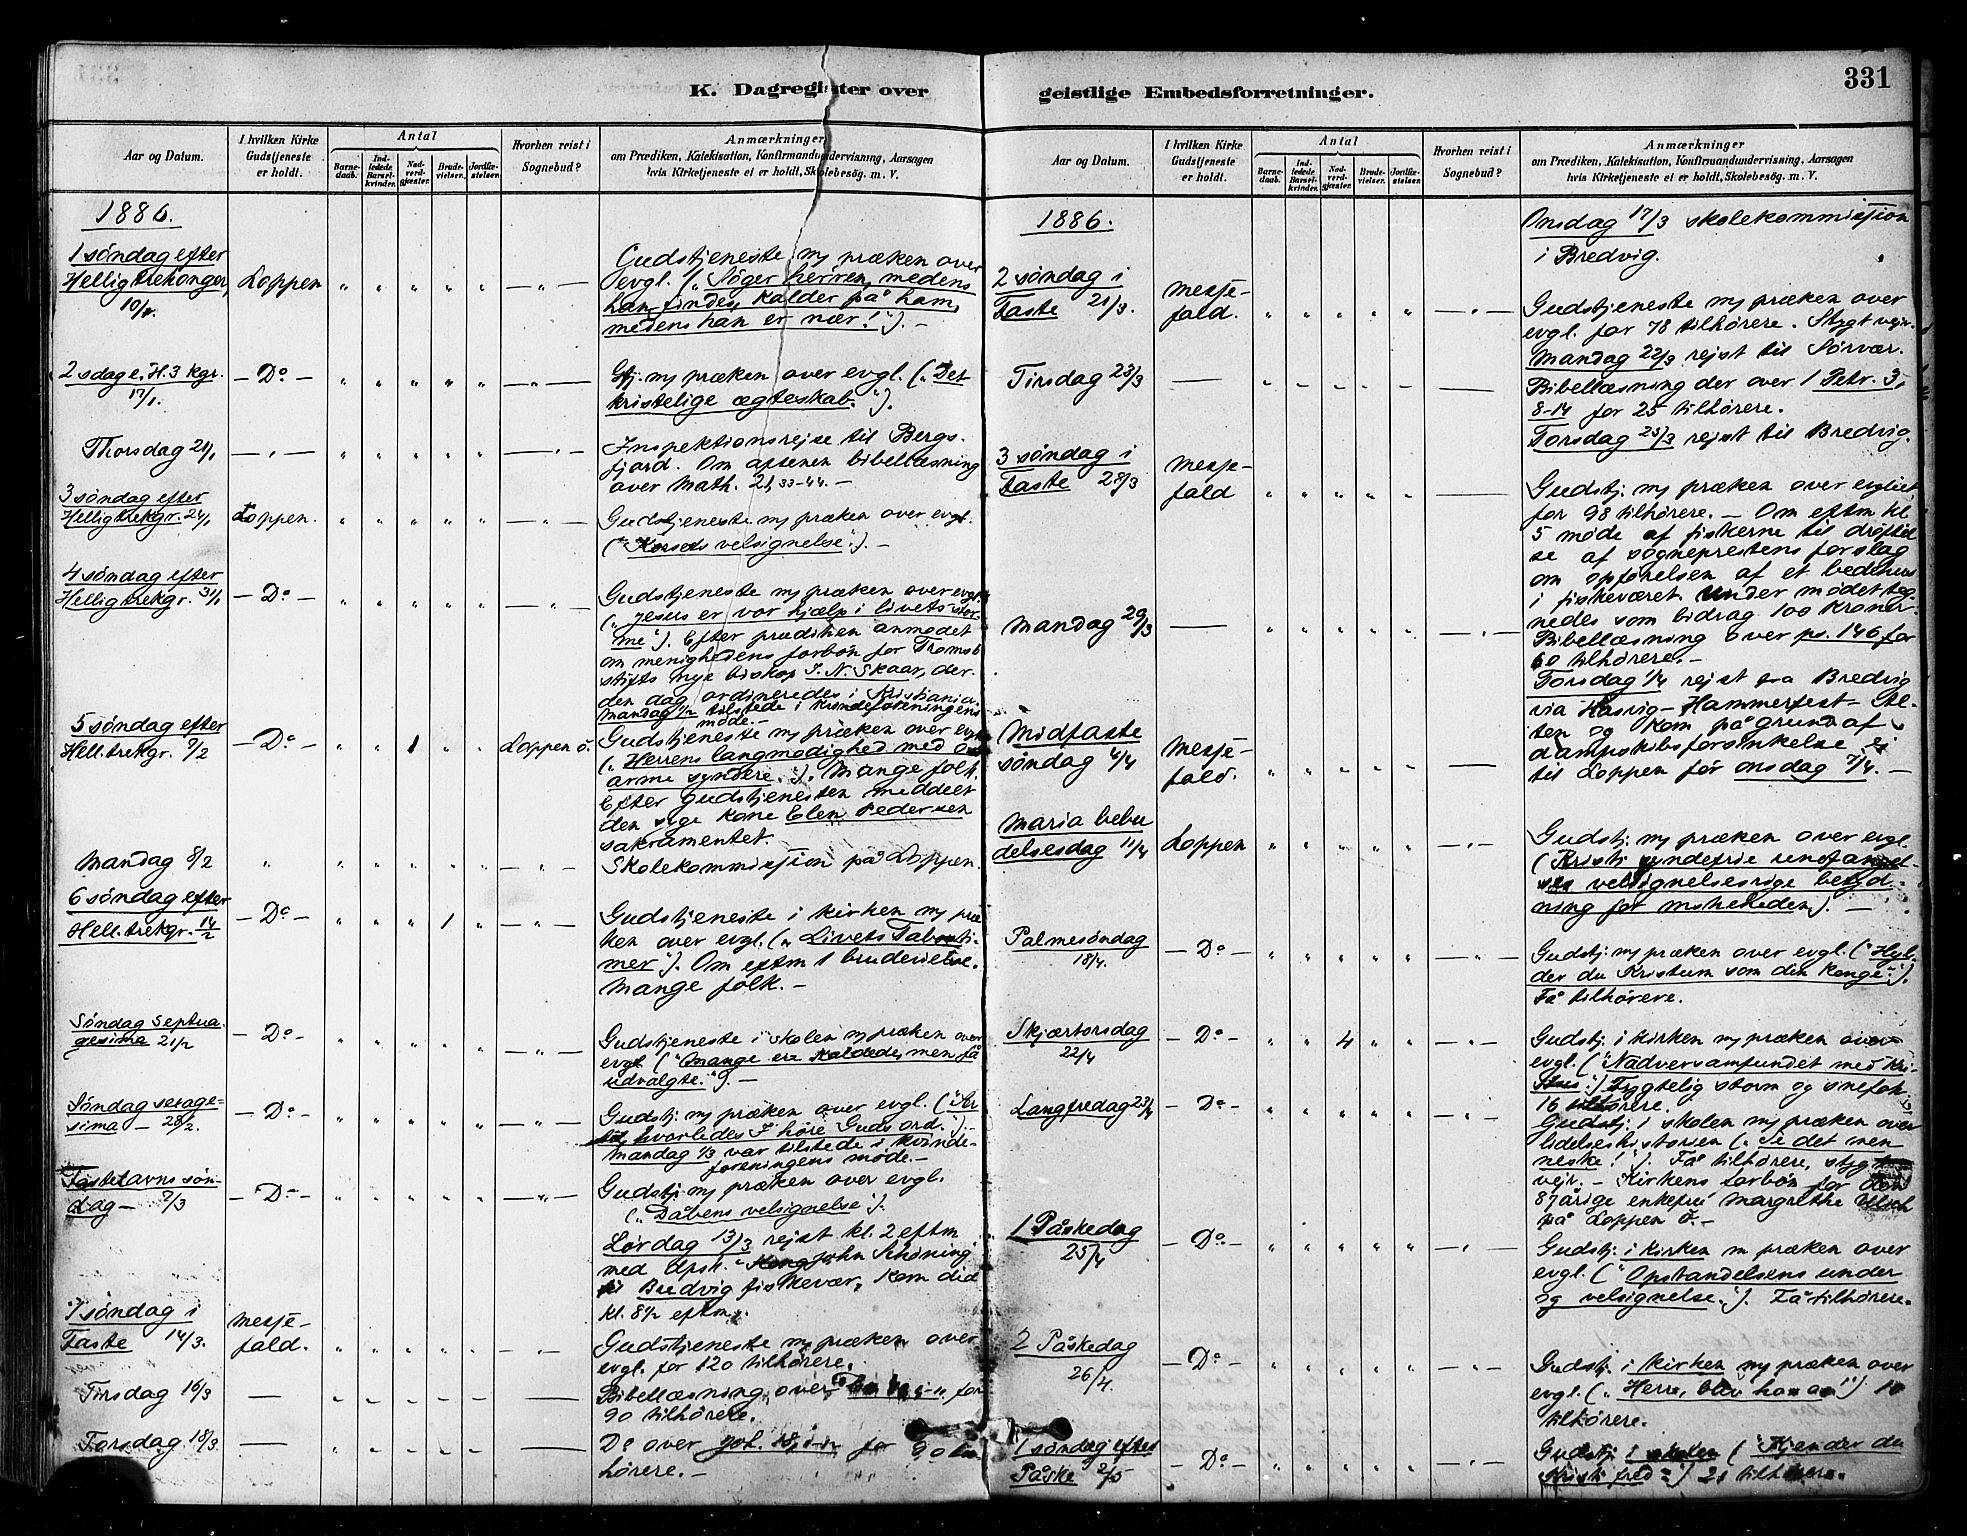 331
K. Dagregister over geistlige Embedsforretninger.
Aar og Datum.
I hvilken Kirke Gudstjeneste er holdt.
Antal
Barne-daab.
Ind-ledede Barsel-kvinder.
Nad-verd-gjester.
Brude-vielser.
Jordfæ-stelser.
Hvorhen reist i Sognebud?
Anmærkninger
om Prædiken, Katekisation, Konfirmandundervisning, Aarsagen
hvis Kirketjeneste ei er holdt, Skolebesøg. m. V.
1886.
1 søndag efter
Hellig trekonger,
10/1.
Loppen
Gudstjeneste m/ præken over
evgl. („Søger herren, medens
han findes, kalder på ham,
medens han er nær!"). —
2 sdag e. H. 3 kgr.
17/1.
— Do —
Gtj. m/ præken over evgl. („Det
kristelige ægteskab.").
Thorsdag 21/1
Inspektionsrejse til Bergs-
fjord. Om aftenen bibellæsning
over Math. 21, 33-44. —
3 søndag efter
Hellig trekgr. 24/1
Loppen.
Gudstjeneste m/ præken over evgl.
("Korsets velsignelse"). —
4 søndag efter
Hellig trekgr. 31/1
— Do —
Gudstjeneste m/ præken over evgl.
(„Jesus er vor hjælp i livets stor-
me"). Efter prædiken anmodet
om menighedens forbøn for Tromsø
stifts nye biskop J. N. Skaar, der
den dag ordineredes i Kristiania.
Mandag 1/2 tilstede i kvindeforeningens
møde. —
5 søndag efter
Hell. trekgr. 7/2
— Do —
1
Loppen ö.
Gudstjeneste m/ præken over evgl.
(„Herrens langmodighed med os
arme syndere."). Mange folk.
Efter gudstjenesten meddelt
den syge kone Elen Pedersen
sakramentet.
Mandag 8/2
Skolekommissjon på Loppen.
6 søndag efter
Hell. trekgr. 14/2
— Do —
1
Gudstjeneste i kirken m/ præ-
ken over evgl. („Livets Tabor ti-
mer"). Om eftm 1 brudevielse.
Mange folk. —
Søndag Septua-
gesima 21/2
— Do —
Gudstjeneste i skolen m/ præken over
evgl. ("Mange ere kaldede, men få
udvalgte."). —
Søndag sexage-
sima — 28/2.
— Do —
Gudstj. m/ præken over evgl. ("Ser
til, hvorledes I høre Guds ord.").
Mandag 1/3 var tilstede i kvinde-
foreningens møde. —
Fastelavns søn-
dag — 7/3
— Do —
Gudstj m/ præken over evgl.
(„Dåbens velsignelse").
Lørdag 13/3 rejst kl. 2 eftm
med John Schøning
til Bredvig fiskevær, kom did
kl. 8½ eftm.
1 søndag i
Faste 14/3.
Mesje-
fald.
Gudstjeneste m/ præken over
evgl. for 120 tilhørere.
Tirsdag 16/3
Bibellæsning over for
90 tilhørere.
Torsdag 18/3
Do over for 90 til
hørere. —
1886.
Onsdag 17/3 skolekommissjon
i Bredvig.
2 søndag i
Faste 21/3.
Mesje-
fald.
Gudstjeneste m/ præken over
evgl. for 78 tilhørere. Stygt vejr.
Mandag 22/3 rejst til Sørvær.
Tirsdag 23/3
Bibellæsning der over 1 Petr. 3,
8-14 for 25 tilhørere.
Torsdag 25/3 rejst til Bredvig.
3 søndag i
Faste 28/3
Mesje-
fald
Gudstj. m/ præken over evgliet
for 98 tilhørere. — Om eftm kl
5 møde af fiskerne til drøftel
se af sogneprestens forslag
om opførelsen af et bedehus
i fiskeværet. Under mødet teg-
nedes som bidrag 100 kroner.
Mandag 29/3
Bibellæsning over ps. 146 for
60 tilhørere. —
Torsdag 1/4 rejst fra Bredvig
via Hasvig — Hammerfest — Al-
ten og kom på grund af
dampskibsforsinkelse ej
til Loppen før onsdag 7/4. —
Midfaste
søndag 4/4
Mesje-
fald.
Maria bebu
delsesdag 11/4
Loppen
Gudstj. m/ præken over evgl.
(Kristi syndefrie undfangel-
ses velsignelsesrige betyd-
ning for mskeheden). —
Palmesøndag
18/4.
— Do —
Gudstj. m/ præken over evgl. ("Hyl-
der du Kristum som din konge?").
Få tilhørere.
Skjærtorsdag
22/4
— Do —
4
Gudstj. i kirken m/ præken over
evgl. ("Nadversamfundet med Kri-
stus") Frygtelig storm og snefok
16 tilhørere.
Langfredag 23/4
— Do —
Gudstj. i skolen m/ præken over
lidelseshistorien („Se det men
neske!"). Få tilhørere, stygt
vejr. — Kirkens forbøn for den
87 årige enkefru Margrethe
på Loppen ö. —
1 Påskedag
25/4
— Do —
Gudstj. i kirken m præken over
evgl. ("Opstandelsens under
og velsignelse."). Få tilhørere.
2 Påskedag
26/4.
— Do —
Gudstj. i kirken m/ præken over
evgl. („Herre, bliv hos os")
tilhørere.
1 søndag efter
Påske 2/5
— Do —
Gudstj i skolen ("Kjender du
Kristi fred?") 21 tilhørere.